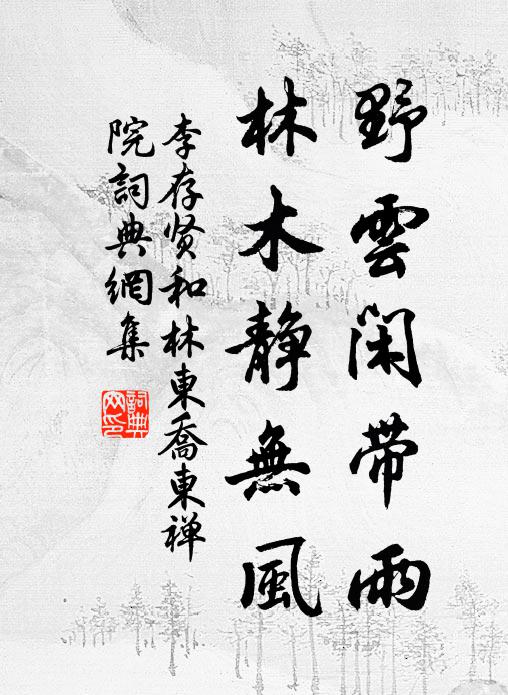 野雲閑帶雨
林木静無風
李存贤和林東喬東禅
院詞典網集
詞典
网印